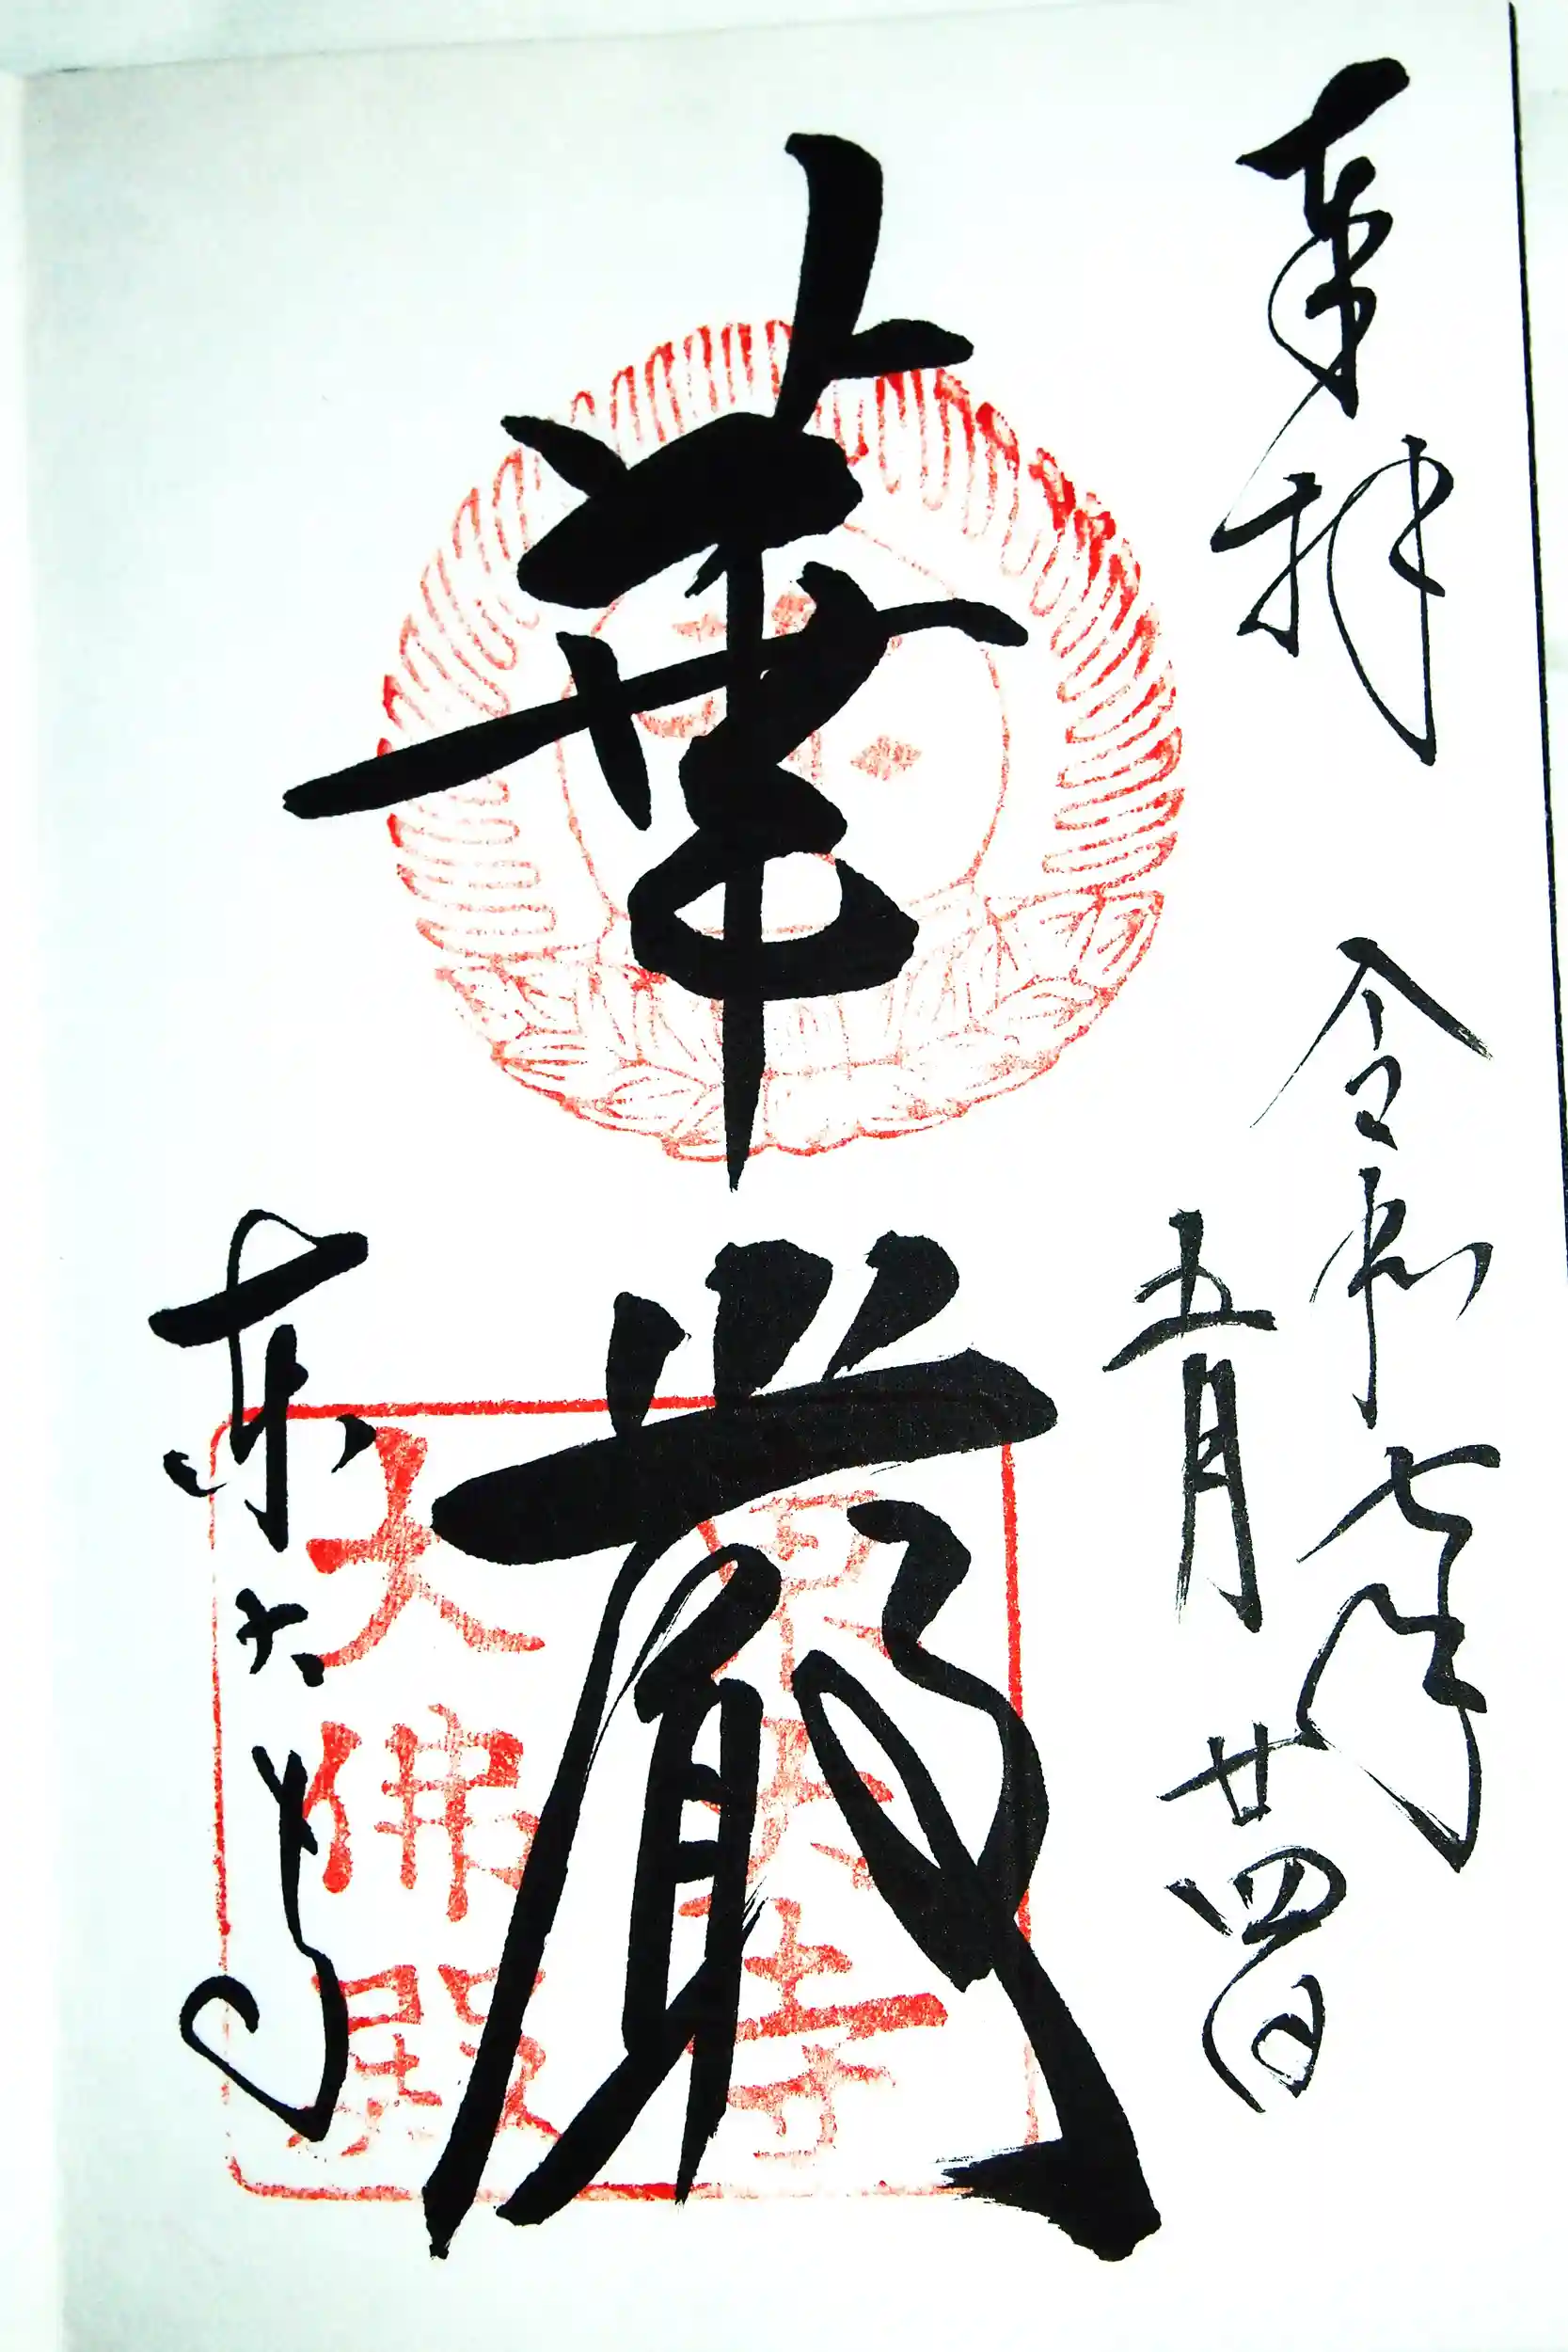 奉拝
令和七年
五月廿四日
華嚴
東大寺
東大寺
大佛殿